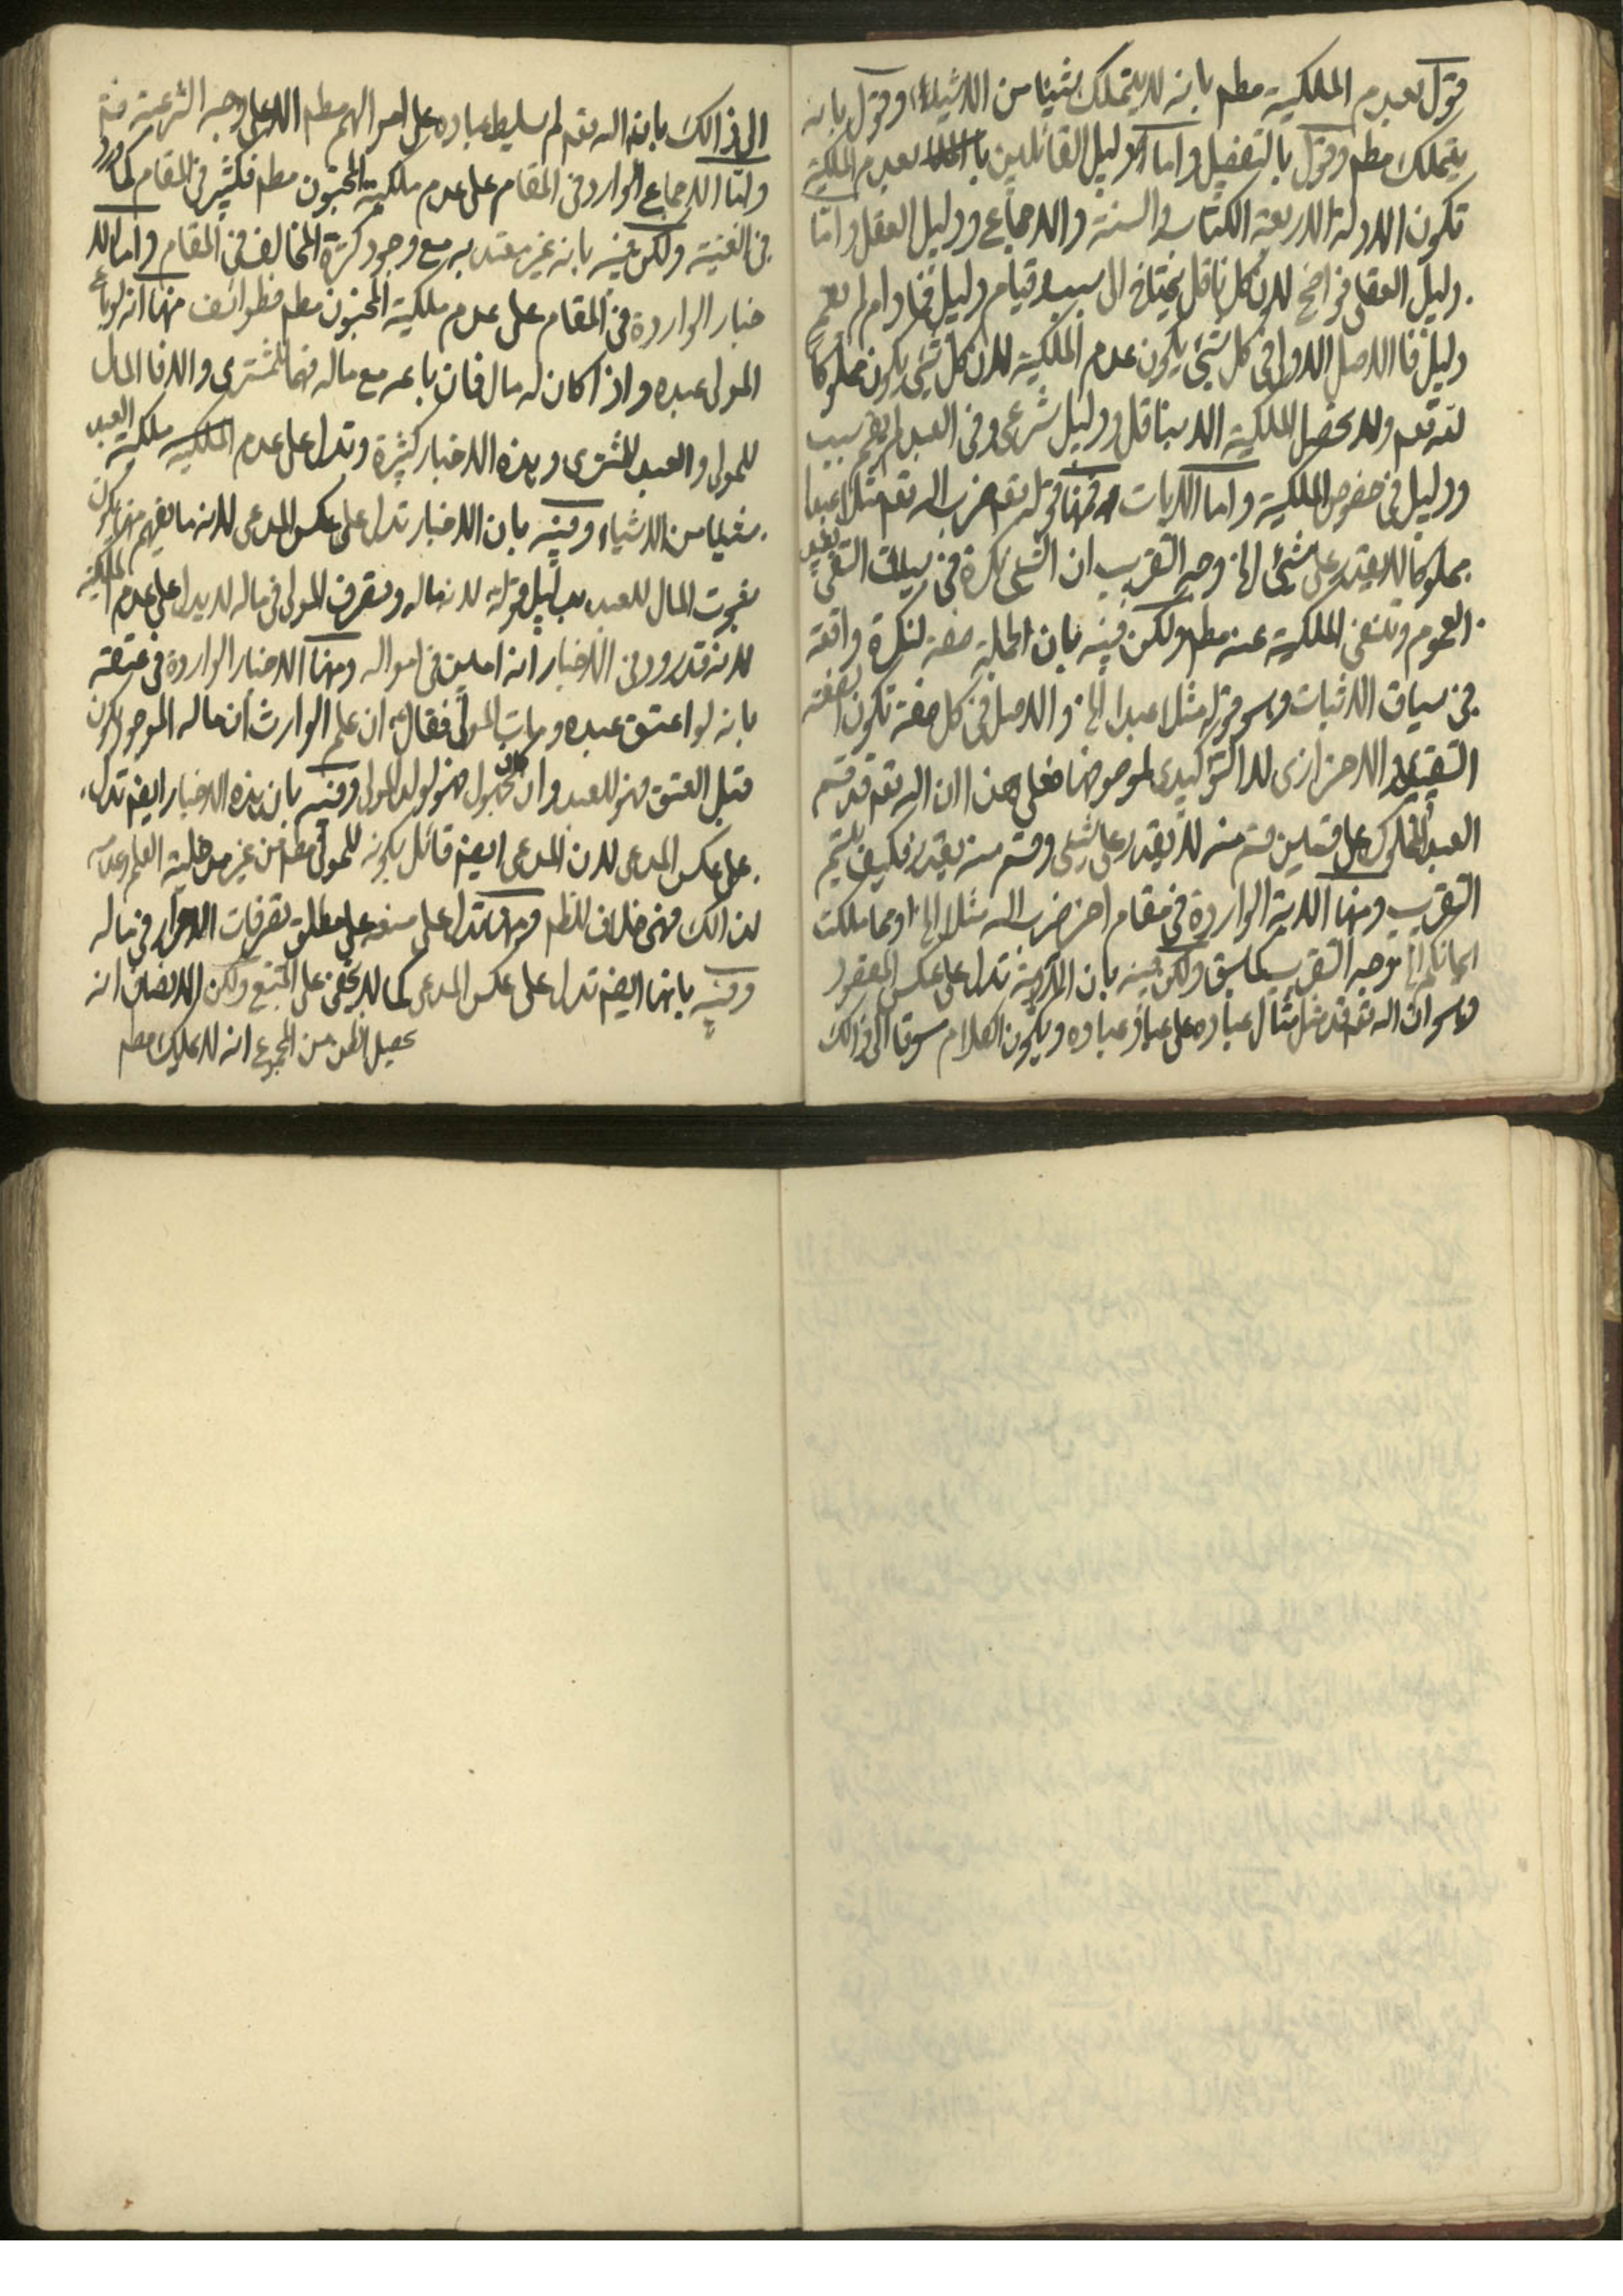 قول بعدم الملكية مطم بانه لا يتملك شيئا من الاشياء وقول بانه
يتملك مطم وقول بالتفضيل واما الدليل القائلين بعدم الملكية
تكون الادلة الاربعة الكتاب والسنة والاجماع ودليل العقل واما
دليل العقل فواضح لان كل ناقل يحتاج الى سبب وقيام دليل فمادام لم يقم
دليل فالاصل الاولى فى كل شئ يكون عدم الملكية لان كل شئ يكون مملوكا
لله تعم ولا يحصل الملكية الا بناقل ودليل شرعى وفى العبد لم يقم سبب
ودليل فى خصوص الملكية واما الايات فمنها قوله تعم ضرب الله تعم مثلا عبدا
مملوكا لا يقدر على شئ الخ وجه التقريب ان الشئ نكرة فى سياق النفى يفيد
العموم وتنفى الملكية عنه مطم ولكن فيه بان الجملة صفة لنكرة واقعة
فى سياق الاثبات وهو قوله مثلا عبدا الخ والاصل فى كل صفة تكون الصفة
التقييد الاحترازى لا التوكيدى لموصوفها فعلى هذا ان اله تعم قد قسم
العبد المملوك على قسمين قسم منه لا يقدر على شئ وقسم منه يقدر فكيف يتم
التقريب ومنها الاية الواردة فى مقام اخر ضرب الله مثلا الخ او مما ملكت
ايمانكم الخ توجه التقريب كما سبق ولكن فيه بان الاية تدل على عكس المقصود
وهو ان اله تعم قد مثل مثال عباده على عباد عباده ويكون الكلام سوقا الى ذالك
الى ذالك بانه اله تعم لم يسليط عباده على اموالهم مطم الا على وجه الشرعية فتم
واما الاجماع الوارد فى المقام على عدم ملكية المجنون مطم فكثير فى المقام كما ورد
فى الغنية ولكن فيه بانه غير معتد به مع وجود كثرة المخالف فى المقام واما الا
خبار الواردة فى المقام على عدم ملكية المجنون مطم فطوائف منها انه لو باع
المولى عبده واذا كان له مال فان باعه مع ماله فهما للمشترى والا فالمال
للمولى والعبد للمشترى وهذه الاخبار كثيرة وتدل على عدم ملكية العبد
شيئا من الاشياء وفيه بان الاخبار تدل على عكس المدعى لانه ما يفهم منها يكون
ثبوت المال للعبد بدليل قوله لانه ماله وتصرف المولى فى ماله لا يدل على عدم الملكية
لانه قد ورد فى الاخبار انه امين فى امواله ومنها الاخبار الواردة فى عتقه
بانه لو اعتق عبده ومات المولى فقال ان علم الوارث ان ماله الموجود يكون
قبل العتق فهو للعبد وان كان مجهول فهو لولد المولى وفيه بان هذه الاخبار ايضم تدل
على عكس المدعى لان المدعى ايضم قائل بكونه للمولى مطم من غير مدخلية العلم وعدمه
لذالك فهى خلاف للنظم ومنها تدل على منعه على مطلق تصرفات الاحرار فى ماله
وفيه بانها ايضم تدل على عكس المدعى كما لا يخفى على المتتبع ولكن الانصاف انه
يحصل الظن من المجموع انه لا يملك مطم